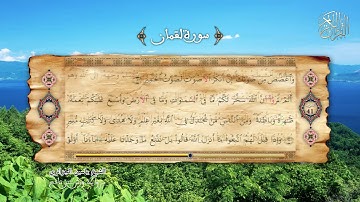 سورة لقمان
وَٱغْضُضْ مِن صَوْتِكَ إِنَّ أَنكَرَ ٱلْأَصْوَٰتِ لَصَوْتُ ٱلْحَمِيرِ
أَلَمْ تَرَوْا۟ أَنَّ ٱللَّهَ سَخَّرَ لَكُم مَّا فِى ٱلسَّمَٰوَٰتِ وَمَا فِى ٱلْأَرْضِ وَأَسْبَغَ عَلَيْكُمْ نِعَمَهُۥ
ظَٰهِرَةً وَبَاطِنَةً وَمِنَ ٱلنَّاسِ مَن يُجَٰدِلُ فِى ٱللَّهِ بِغَيْرِ عِلْمٍ وَلَا هُدًى وَلَا كِتَٰبٍ مُّنِيرٍ
وَإِذَا قِيلَ لَهُمُ ٱتَّبِعُوا۟ مَآ أَنزَلَ ٱللَّهُ قَالُوا۟ بَلْ نَتَّبِعُ مَا وَجَدْنَا عَلَيْهِ ءَابَآءَنَآ أَوَلَوْ